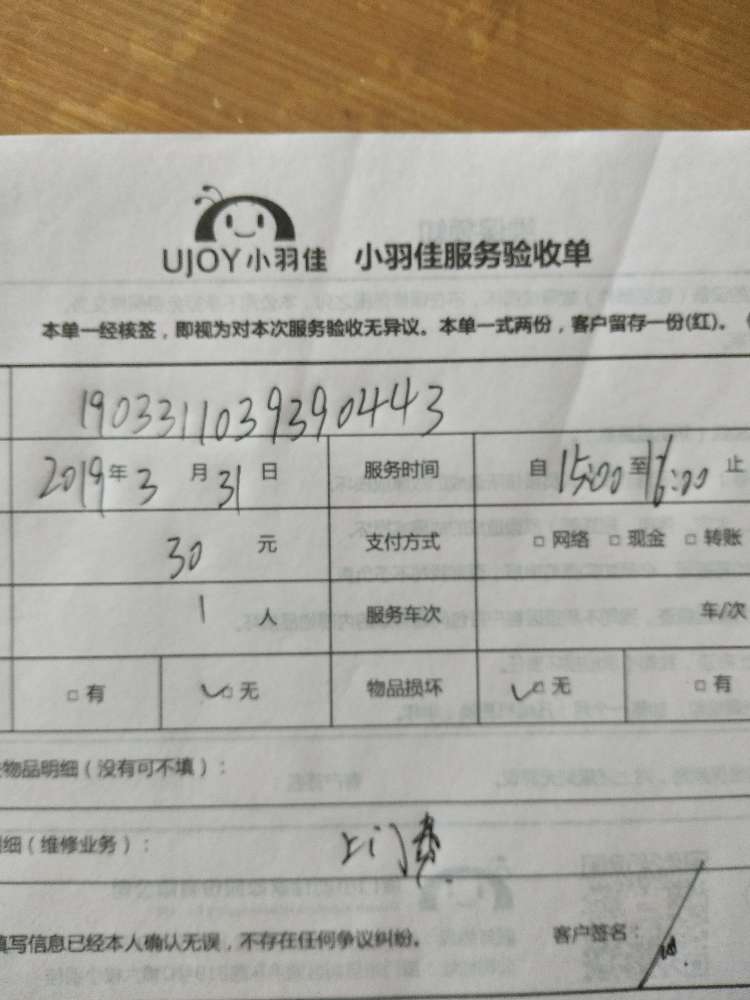 UJOY小羽佳 小羽佳服务验收单
本单一经核签，即视为对本次服务验收无异议。本单一式两份，客户留存一份(红)。
19033110393904443
2019年3月31日 服务时间 自15:00至16:00止
30元 支付方式 □网络 □现金 □转账
1人 服务车次 车/次
□有 ✓□无 物品损坏 ✓□无 □有
物品明细（没有可不填）：
细（维修业务）： 上门费
填写信息已经本人确认无误，不存在任何争议纠纷。 客户签名：